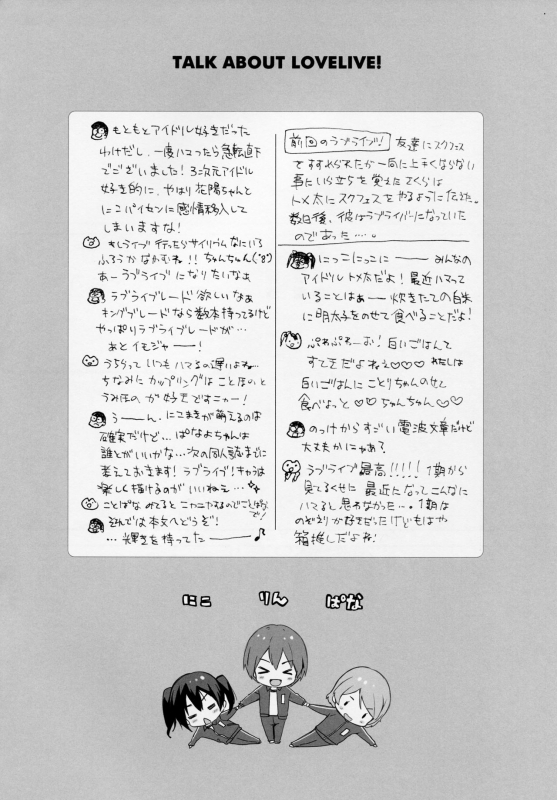 TALK ABOUT LOVELIVE!
前回のラブライブ! 友達にスクフェス
ですすめられたが一向に上手くならない
事にいら立ちを覚えたさくらは
トメ太にスクフェスをやるように伝えた。
数日後、彼はラブライバーになっていた
のであった…。
にっこにっこにー みんなの
アイドルトメ太だよ!最近ハマって
いることはぁー 炊きたての白米
に明太子をのせて食べることだよ!
ぷわぷわーお!白いごはんて
すてきだよねぇ♡♡♡わたしは
白いごはんにことりちゃんのせて
食べよっと♡ちゃんちゃん♡♡
のっけからすごい電波文章だけど
大丈夫かにゃあ?
ラブライブ最高!!!!!1期から
見てるくせに最近になってこんなに
ハマると思わなかった…。1期は
のぞえりが好きだったけどもはや
箱推しだよね!
もともとアイドル好きだった
わけだし、一度ハマったら急転直下
でございました!3次元アイドル
好き的に、やはり花陽ちゃんと
にこパイセンに感情移入して
しまいますな!
もしライブ行ったらサイリウムなにいろ
ふろうかなかむね!!ちゃんちゃん
あーラブライブになりたいなぁ
ラブライブレード欲しいなぁ
キングブレードなら数本持ってるけど
やっぱりラブライブレードが…
あとイモジャー!
うちらっていつもハマるの遅いよね…
ちなみにカップリングはことほのと
うみほのが好きですニャー!
うーん、にこまきが萌えるのは
確実だけど…ぱなよちゃんは
誰とがいいかな…次の同人誌までに
考えておきます!ラブライブ!キャラは
楽しく描けるのがいいねぇ…
ことぱなみてるとニヤニヤするのでことぱなで!
それでは本文へどうぞ!
…輝きを持ってたー♪
にこ りん ぱな